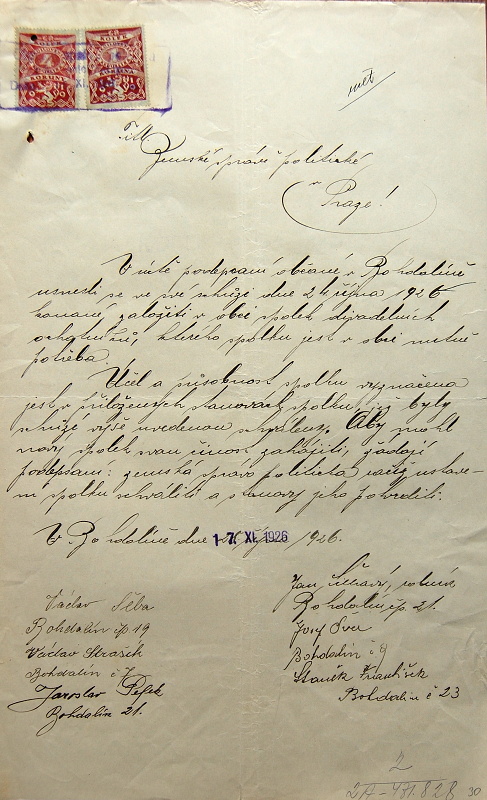 ČR ČR
KOLEK KOLEK
4 1
KORUNY KORUNA
Zemské správě politické
v
Praze!
V úctě podepsaní občané v Bohdalíně
usnesli se ve své schůzi dne 24. října 1926
konané, založiti v obci spolek divadelních
ochotníků, kterého spolku jest v obci nutně
potřeba.
Účel a působnost spolku vyznačena
jest v přiložených stanovách spolku, jež byly
schůzí výše uvedenou schváleny. Aby mohl
nový spolek svou činnost zahájiti, žádají
podepsaní: zemská správo politická račiž ustave-
ní spolku schváliti a stanovy jeho potvrditi.
V Bohdalíně dne 17. XI. 1926 1926.
Václav Šéba
Bohdalín čp. 19
Václav Strašík
Bohdalín č 7
Jaroslav Pešek
Bohdalín 21.
Jan, rolník
Bohdalín čp. 21.
Josef Švec
Bohdalín č 9
Staněk František
Bohdalín č 23
2
30